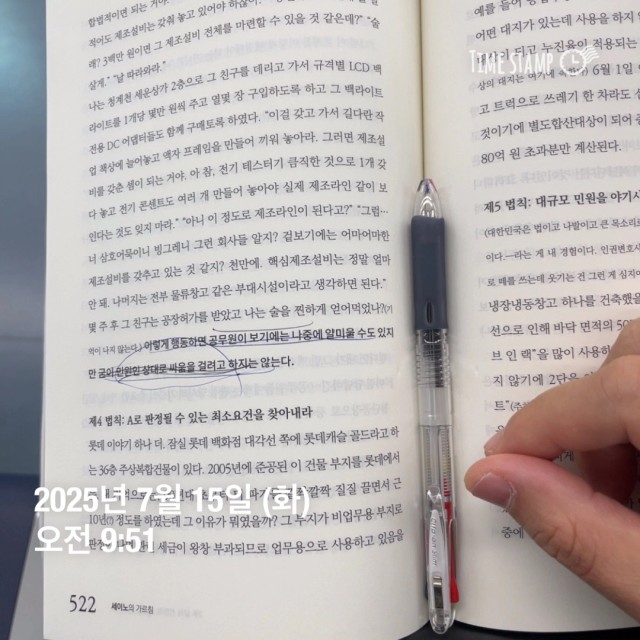 합법적이면 되는 거야. 아
적어도 제조설비는 갖춰 놓고 있어야 하잖아?" "얼
래? 3백만 원이면 그 제조설비 전체를 마련할 수 있을 것 같은데?" "술
살게." "날 따라와라."
나는 청계천 세운상가 2층으로 그 친구를 데리고 가서 규격별 LCD 백
라이트를 1개당 몇만 원씩 주고 열몇 장 구입하도록 하고 그 백라이트
전용 DC 어댑터들도 함께 구매토록 하였다. "이걸 갖고 가서 길다란 작
업 책상에 늘어놓고 액자 프레임을 만들어 끼워 놓아라. 그러면 제조설
비를 갖춘 셈이 되는 거야. 아 참, 전기 테스터기 큼직한 것으로 1개 갖
다 놓고 전기 콘센트도 여러 개 만들어 놓아야 실제 제조라인 같이 보
인다는 것도 잊지 마라." "아니 이 정도로 제조라인이 된다고?" "그럼…
너 삼호어묵이니 빙그레니 그런 회사들 알지? 겉보기에는 어마어마한
제조설비를 갖추고 있는 것 같지? 천만에. 핵심제조설비는 정말 얼마
안 돼. 나머지는 전부 물류창고 같은 부대시설이라고 생각하면 된다."
몇 주 후 그 친구는 공장허가를 받았고 나는 술을 찐하게 얻어먹었나?(기
억이 나지 않는다.) 이렇게 행동하면 공무원이 보기에는 나중에 얄미울 수도 있지
만 굳이 만원인 상대로 싸움을 걸려고 하지는 않는다.
제4 법칙: A로 판정될 수 있는 최소요건을 찾아내라
롯데 이야기 하나 더. 잠실 롯데 백화점 대각선 쪽에 롯데캐슬 골드라고 하
는 36층 주상복합건물이 있다. 2005년에 준공된 이 건물 부지를 롯데에서
깔짝 질질 끌면서 근
10년(?) 정도를 하였는데 그 이유가 뭐였을까? 그 부지가 비업무용 부지로
세금이 왕창 부과되므로 업무용으로 사용하고 있음을
522 세이노의 가르침
예를 들어 창
어떤 대지가 있는데 사용을 하지
되고 누진율이 적용되는
6월 1일
고 트럭으로 쓰레기 한 차라도
것이기에 별도합산대상이 되어
80억 원 초과분만 계산된다.
제5 법칙: 대규모 민원을 야기시
(대한민국은 법이고 나발이고 큰 목소리로
이다.―라는 게 내 경험이다. 인권변호사
로 떼를 쓰는데 웃기는 건 그런 게 심지어
냉장냉동창고 하나를 건축했을
선으로 인해 바닥 면적의 50%
브 인 랙"을 많이 사용한
지 않기에 2단은
트"
중에
TIME STAMP
2025년 7월 15일 (화)
오전 9:51